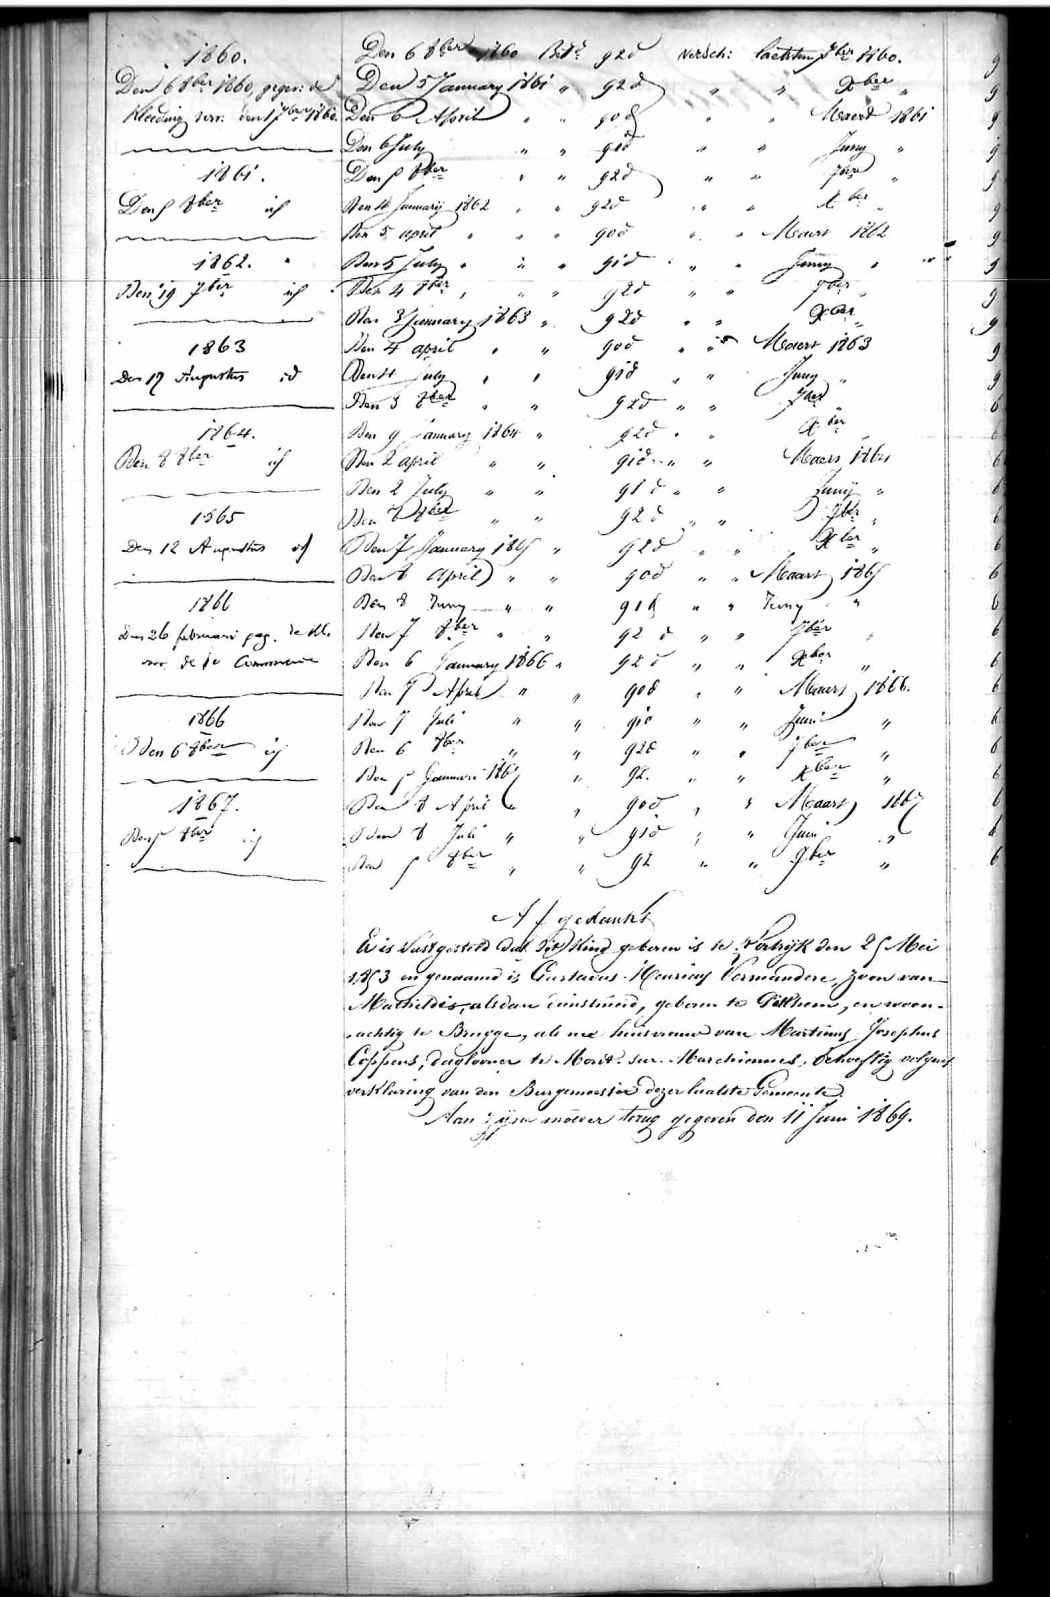 1860.
Den 6 8ber 1860, gegev: de
Kleeding verv: den 1 7ber 1860.
1861.
Den 5 8ber id
1862.
Den 19 7ber id
1863
Den 17 Augustus id
1864.
Den 8 8ber id
1865
Den 12 Augustus id
1866
Den 26 februari
de Commercie
1866
Den 6 8ber id
1867.
Den 5 8ber id
Den 6 8ber 1860 Bet. 92d versch: laetsten 7ber 1860.
Den 5 January 1861 " 92d " " Xber "
Den 6 April " " 90d " " Maert 1861
Den 6 July " " 91d " " Juny "
Den 5 8ber " " 92d " " 7ber "
Den 4 January 1862 " " 92d " " Xber "
Den 5 april " " " 90d " " Maert 1862
Den 5 July " " " 91d " " Juny "
Den 4 8ber " " " 92d " " 7ber "
Den 3 January 1863 " 92d " " Xber "
Den 4 april " " 90d " " Maert 1863
Den 4 July " " 91d " " Juny "
Den 3 8ber " " 92d " " 7ber "
Den 9 January 1864 " 92d " " Xber "
Den 2 april " " 91d " " Maert 1864
Den 2 July " " 91d " " Juny "
Den 8 8ber " " 92d " " 7ber "
Den 7 January 1865 " 92d " " Xber "
Den 8 April " " 90d " " Maart 1865
Den 8 Juny " " 91d " " Juny "
Den 7 8ber " " 92d " " 7ber "
Den 6 January 1866 " 92d " " Xber "
Den 7 April " " 90d " " Maart 1866.
Den 7 Juli " " 91d " " Juni "
Den 6 8ber " " 92d " " 7ber "
Den 5 Januari 1867 " 92. " " Xber "
Den 8 April " " 90d " " Maart 1867
Den 8 Juli " " 91d " " Juni "
Den 5 8ber " " 92 " " 7ber "
Afgedankt
Er is vastgesteld dat dit Kind geboren is te Kortrijk den 25 Mei
1853 en genaamd is Gustavus Henricus Vermandere, zoon van
Mathildis, alsdan dienstmeid, geboren te Pitthem, en woon-
achtig te Brugge, als nu huisvrouw van Martinus Josephus
Coppens, dagloner te Mont-sur-Marchiennes, behoeftig volgens
verklaring van den Burgemeester dezer laatste Gemeente.
Aan zijne moeder terug gegeven den 11 Juni 1869.